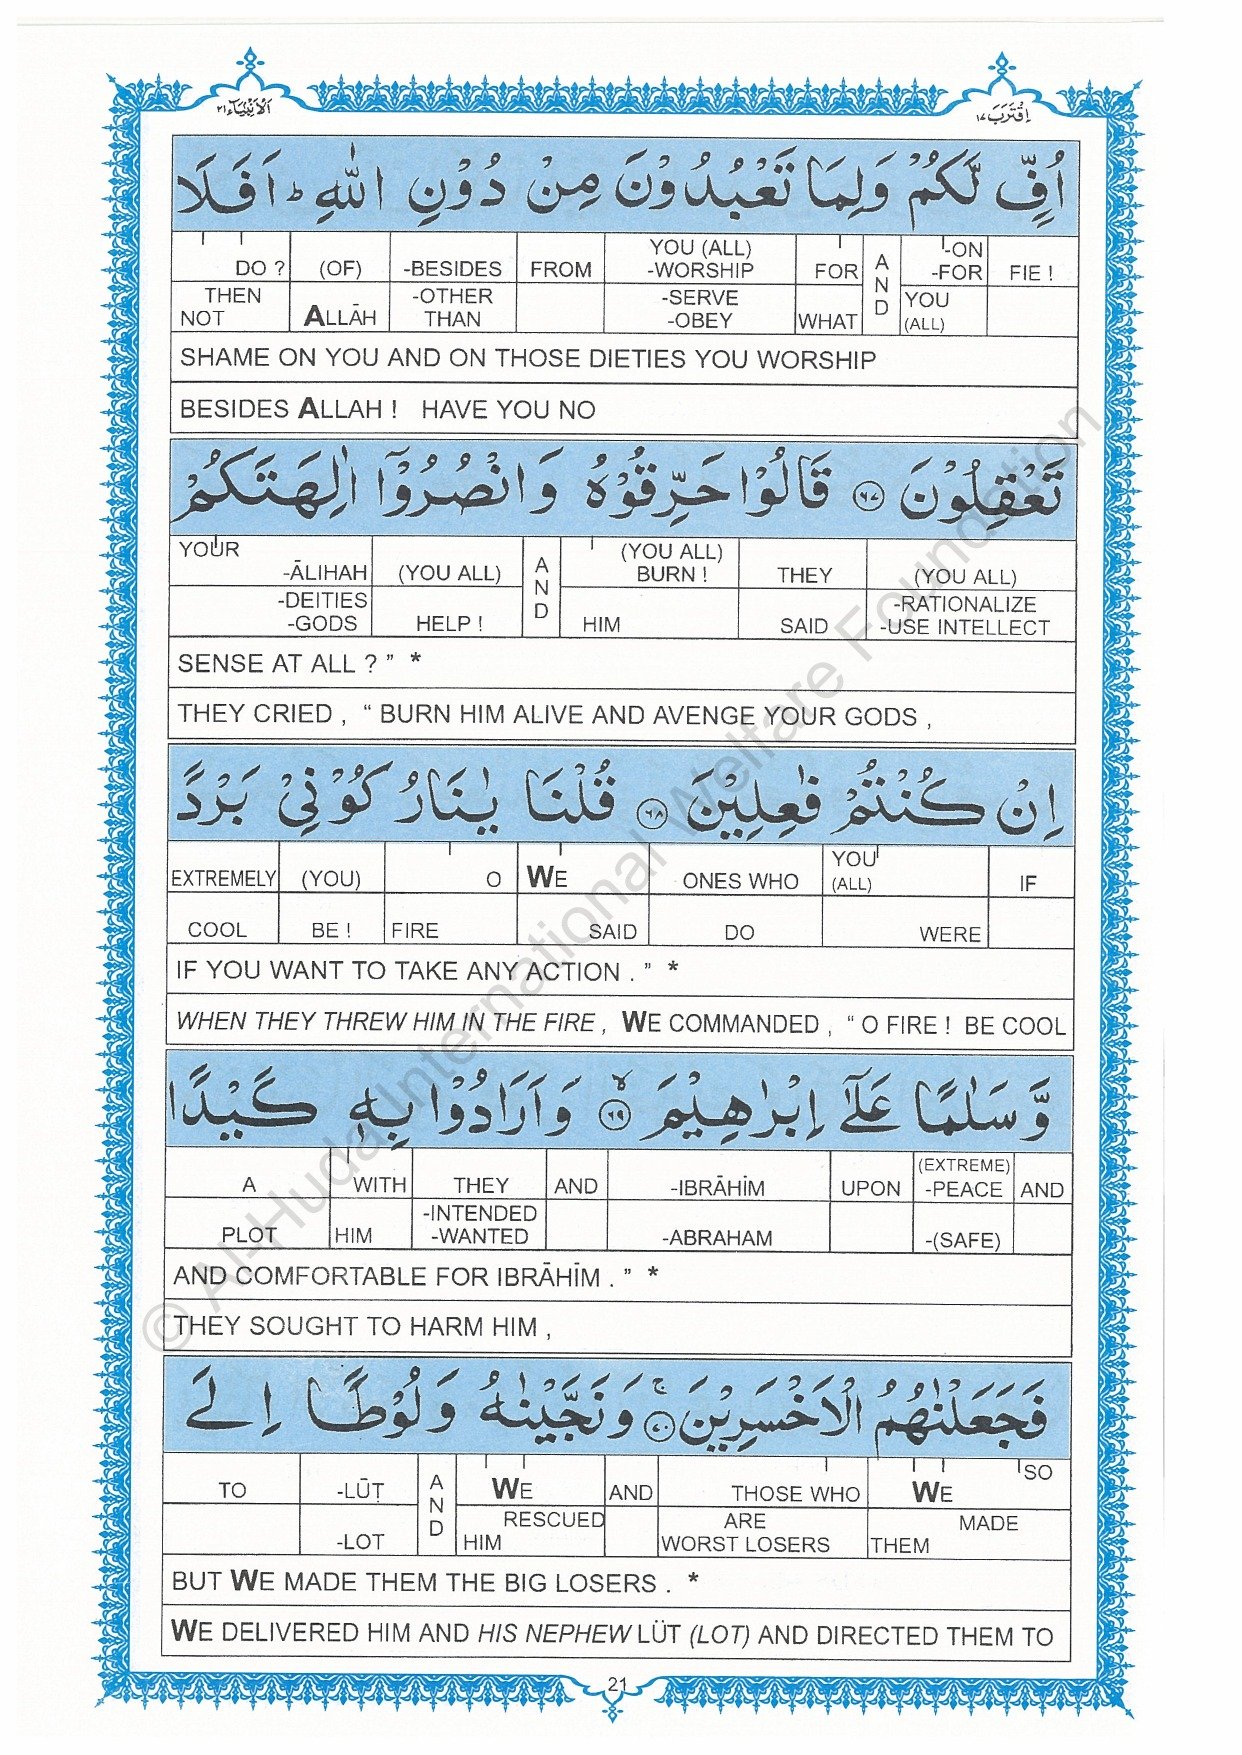 الانبیاء ٢١
اقترب ١٧
اُفٍّ لَّكُمْ وَلِمَا تَعْبُدُوْنَ مِنْ دُوْنِ اللّٰهِ ؕ اَفَلَا
DO ? (OF) -BESIDES FROM YOU (ALL) -WORSHIP FOR AND -ON -FOR FIE !
THEN NOT ALLĀH -OTHER THAN -SERVE -OBEY WHAT YOU (ALL)
SHAME ON YOU AND ON THOSE DIETIES YOU WORSHIP
BESIDES ALLAH ! HAVE YOU NO
تَعْقِلُوْنَ ٦٧ قَالُوْا حَرِّقُوْهُ وَانْصُرُوْٓا اٰلِهَتَكُمْ
YOUR -ĀLIHAH (YOU ALL) AND (YOU ALL) BURN ! THEY (YOU ALL)
-DEITIES -GODS HELP ! HIM SAID -RATIONALIZE -USE INTELLECT
SENSE AT ALL ? ” *
THEY CRIED , “ BURN HIM ALIVE AND AVENGE YOUR GODS ,
اِنْ كُنْتُمْ فٰعِلِيْنَ ٦٨ قُلْنَا يٰنَارُ كُوْنِيْ بَرْدًا
EXTREMELY (YOU) O WE ONES WHO YOU (ALL) IF
COOL BE ! FIRE SAID DO WERE
IF YOU WANT TO TAKE ANY ACTION . ” *
WHEN THEY THREW HIM IN THE FIRE , WE COMMANDED , “ O FIRE ! BE COOL
وَّسَلٰمًا عَلٰٓى اِبْرٰهِيْمَ ٦٩ وَاَرَادُوْا بِهٖ كَيْدًا
A WITH THEY AND -IBRĀHĪM UPON (EXTREME) -PEACE AND
PLOT HIM -INTENDED -WANTED -ABRAHAM -(SAFE)
AND COMFORTABLE FOR IBRĀHĪM . ” *
THEY SOUGHT TO HARM HIM ,
فَجَعَلْنٰهُمُ الْاَخْسَرِيْنَ ٧٠ وَنَجَّيْنٰهُ وَلُوْطًا اِلَى
TO -LŪṬ AND WE AND THOSE WHO WE SO
-LOT RESCUED HIM ARE WORST LOSERS MADE THEM
BUT WE MADE THEM THE BIG LOSERS . *
WE DELIVERED HIM AND HIS NEPHEW LÜT (LOT) AND DIRECTED THEM TO
21
© Al-Huda International Welfare Foundation